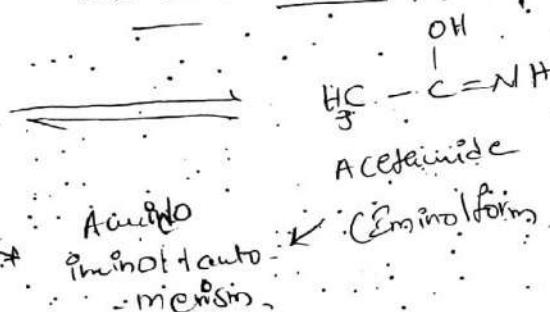 OH
|
H3C - C = NH
Acetamide
(Iminol form
Amido
iminol tauto-
-merism.